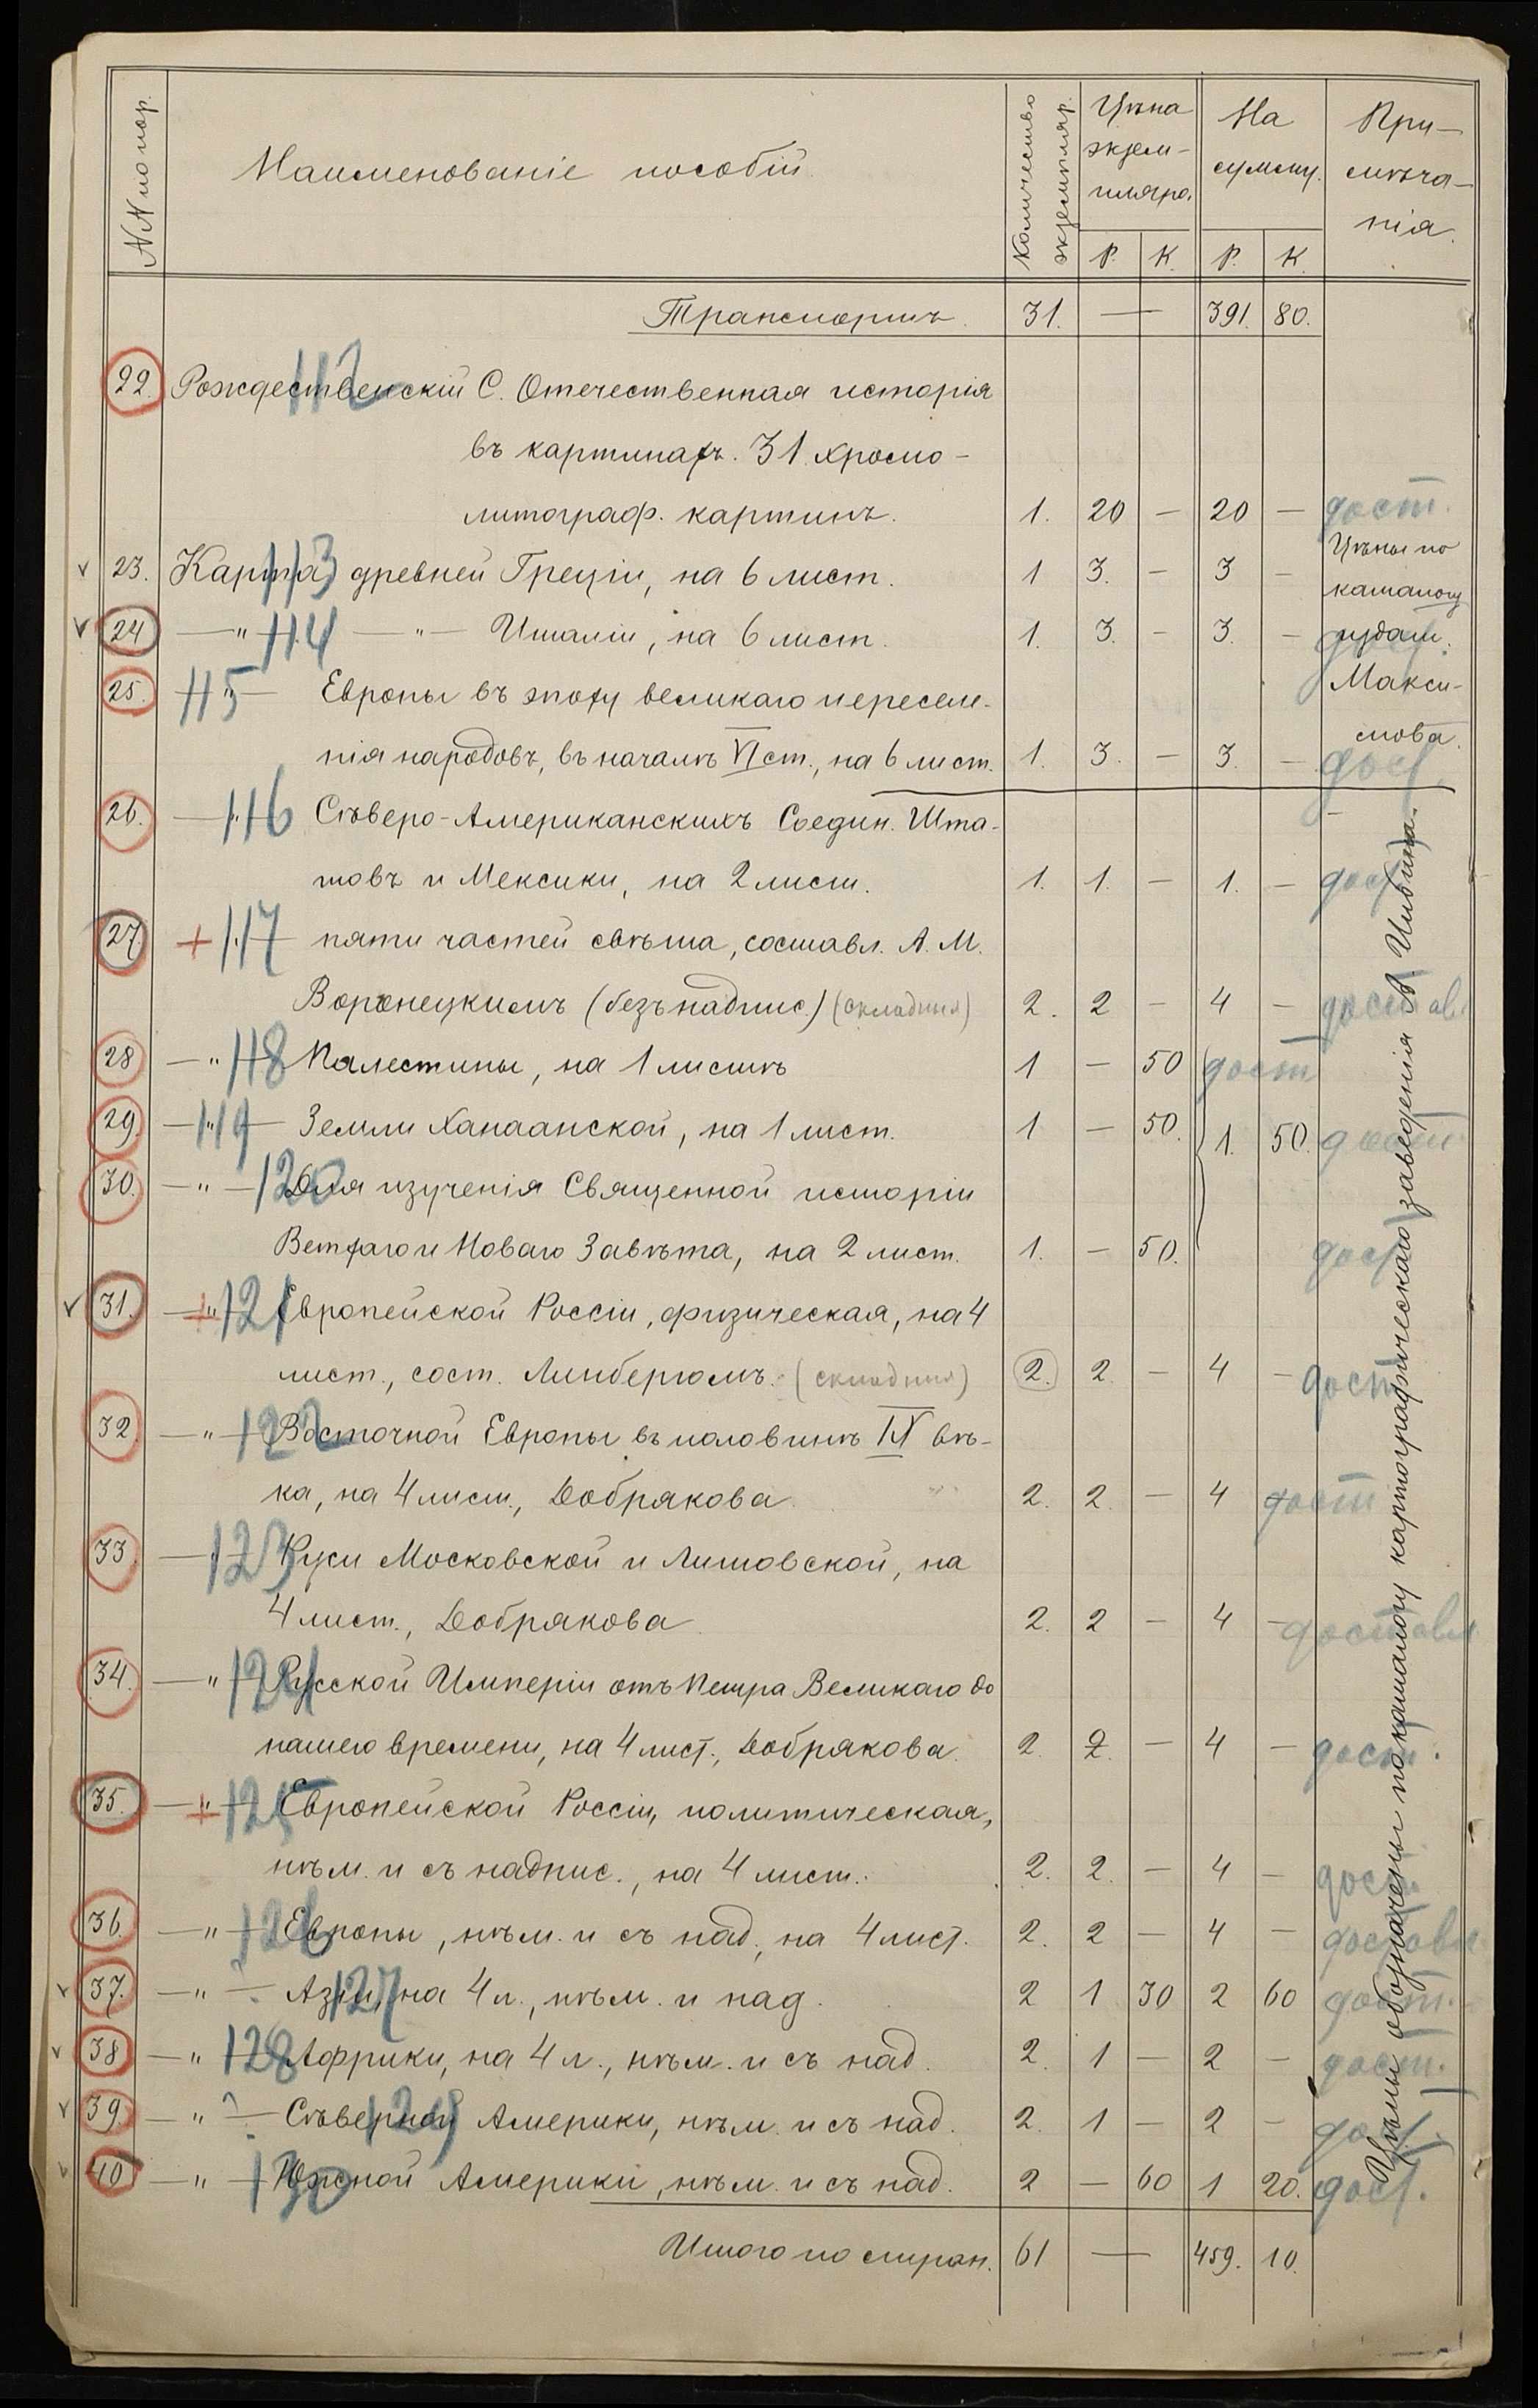 NN по пор.
Наименованіе пособій.
Количество экземпляр.
Цѣна экзем-
пляра.
На сумму.
При-
мѣча-
нія.
Р. К. Р. К.
Транспортъ. 31. — 391. 80.
22. 112 Рождественскій С. Отечественная исторія
въ картинахъ. 31 хромо-
литограф. картинъ. 1. 20 — 20 — дост.
23. 113 Карта древней Греціи, на 6 лист. 1 3. — 3 —
Цѣны по
каталогу
издат.
Макси-
мова.
24 —"— 114 —"— Италіи, на 6 лист. 1. 3. — 3. — дост.
25. 115 —"— Европы въ эпоху великаго переселе-
нія народовъ, въ началѣ VI ст., на 6 лист. 1. 3. — 3. — дост.
26. —"— 116 Сѣверо-Американскихъ Соедин. Шта-
товъ и Мексики, на 2 лист. 1. 1. — 1. — дост
27. + 117 пяти частей свѣта, составл. А. М.
Воронецкимъ (безъ надпис.) (складныя) 2. 2 — 4 — достав.
28 —"— 118 Палестины, на 1 листѣ 1 — 50 дост
29. —"— 119 Земли Ханаанской, на 1 лист. 1 — 50. 1. 50. дост
30. —"— 120 Для изученія Священной исторіи
Ветхаго и Новаго Завѣта, на 2 лист. 1. — 50. дост
31. —"— + 121 Европейской Россіи, физическая, на 4
лист., сост. Линбергомъ. (складныя) 2. 2. — 4 — дост
32. —"— 122 Восточной Европы въ половинѣ IX вѣ-
ка, на 4 лист., Добрякова 2. 2. — 4 дост
33. —"— 123 Руси Московской и Литовской, на
4 лист., Добрякова 2. 2 — 4 — доставл
34. —"— 124 Русской Имперіи отъ Петра Великаго до
нашего времени, на 4 лист., Добрякова. 2. 2. — 4 — дост.
35. —"— + 125 Европейской Россіи, политическая,
нѣм. и съ надпис., на 4 лист. 2. 2. — 4 — дост.
36. —"— 126 Европы, нѣм. и съ над., на 4 лист. 2. 2 — 4 — доставл
37. —"— ? 127 Азіи, на 4 л., нѣм. и над. 2 1 30 2 60 дост.
38 —"— 128 Африки, на 4 л., нѣм. и съ над. 2. 1 — 2 — дост.
39. —"— ? 129 Сѣверной Америки, нѣм. и съ над. 2. 1 — 2 — дост.
40. —"— 130 Южной Америки, нѣм. и съ над. 2 — 60 1 20. дост.
Цѣны обозначены по каталогу картографическаго заведенія А. Ильина.
Итого по стран. 61 — 459. 10.